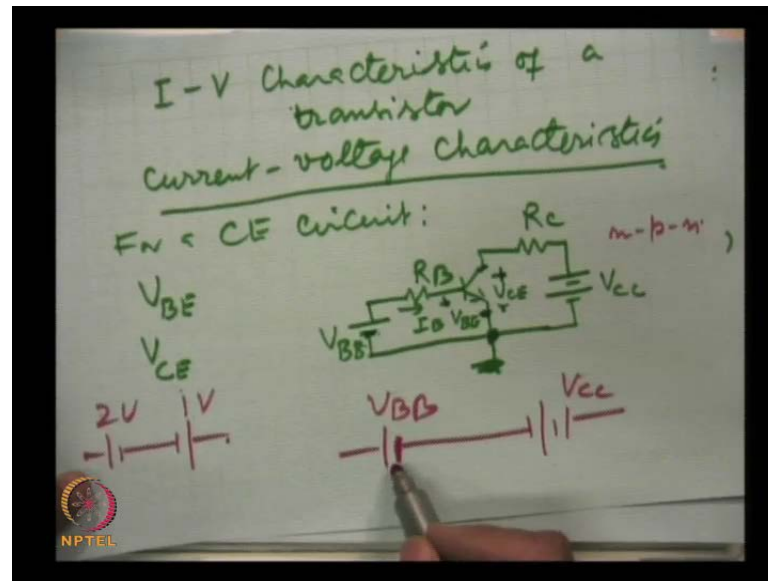 I - V Characteristic of a
transistor
Current - voltage Characteristics
For a CE circuit:
RC
n-p-n
VBE
RB
VCE
VCC
VBB
IB
VBE
VCE
2V
1V
VBB
VCC
NPTEL